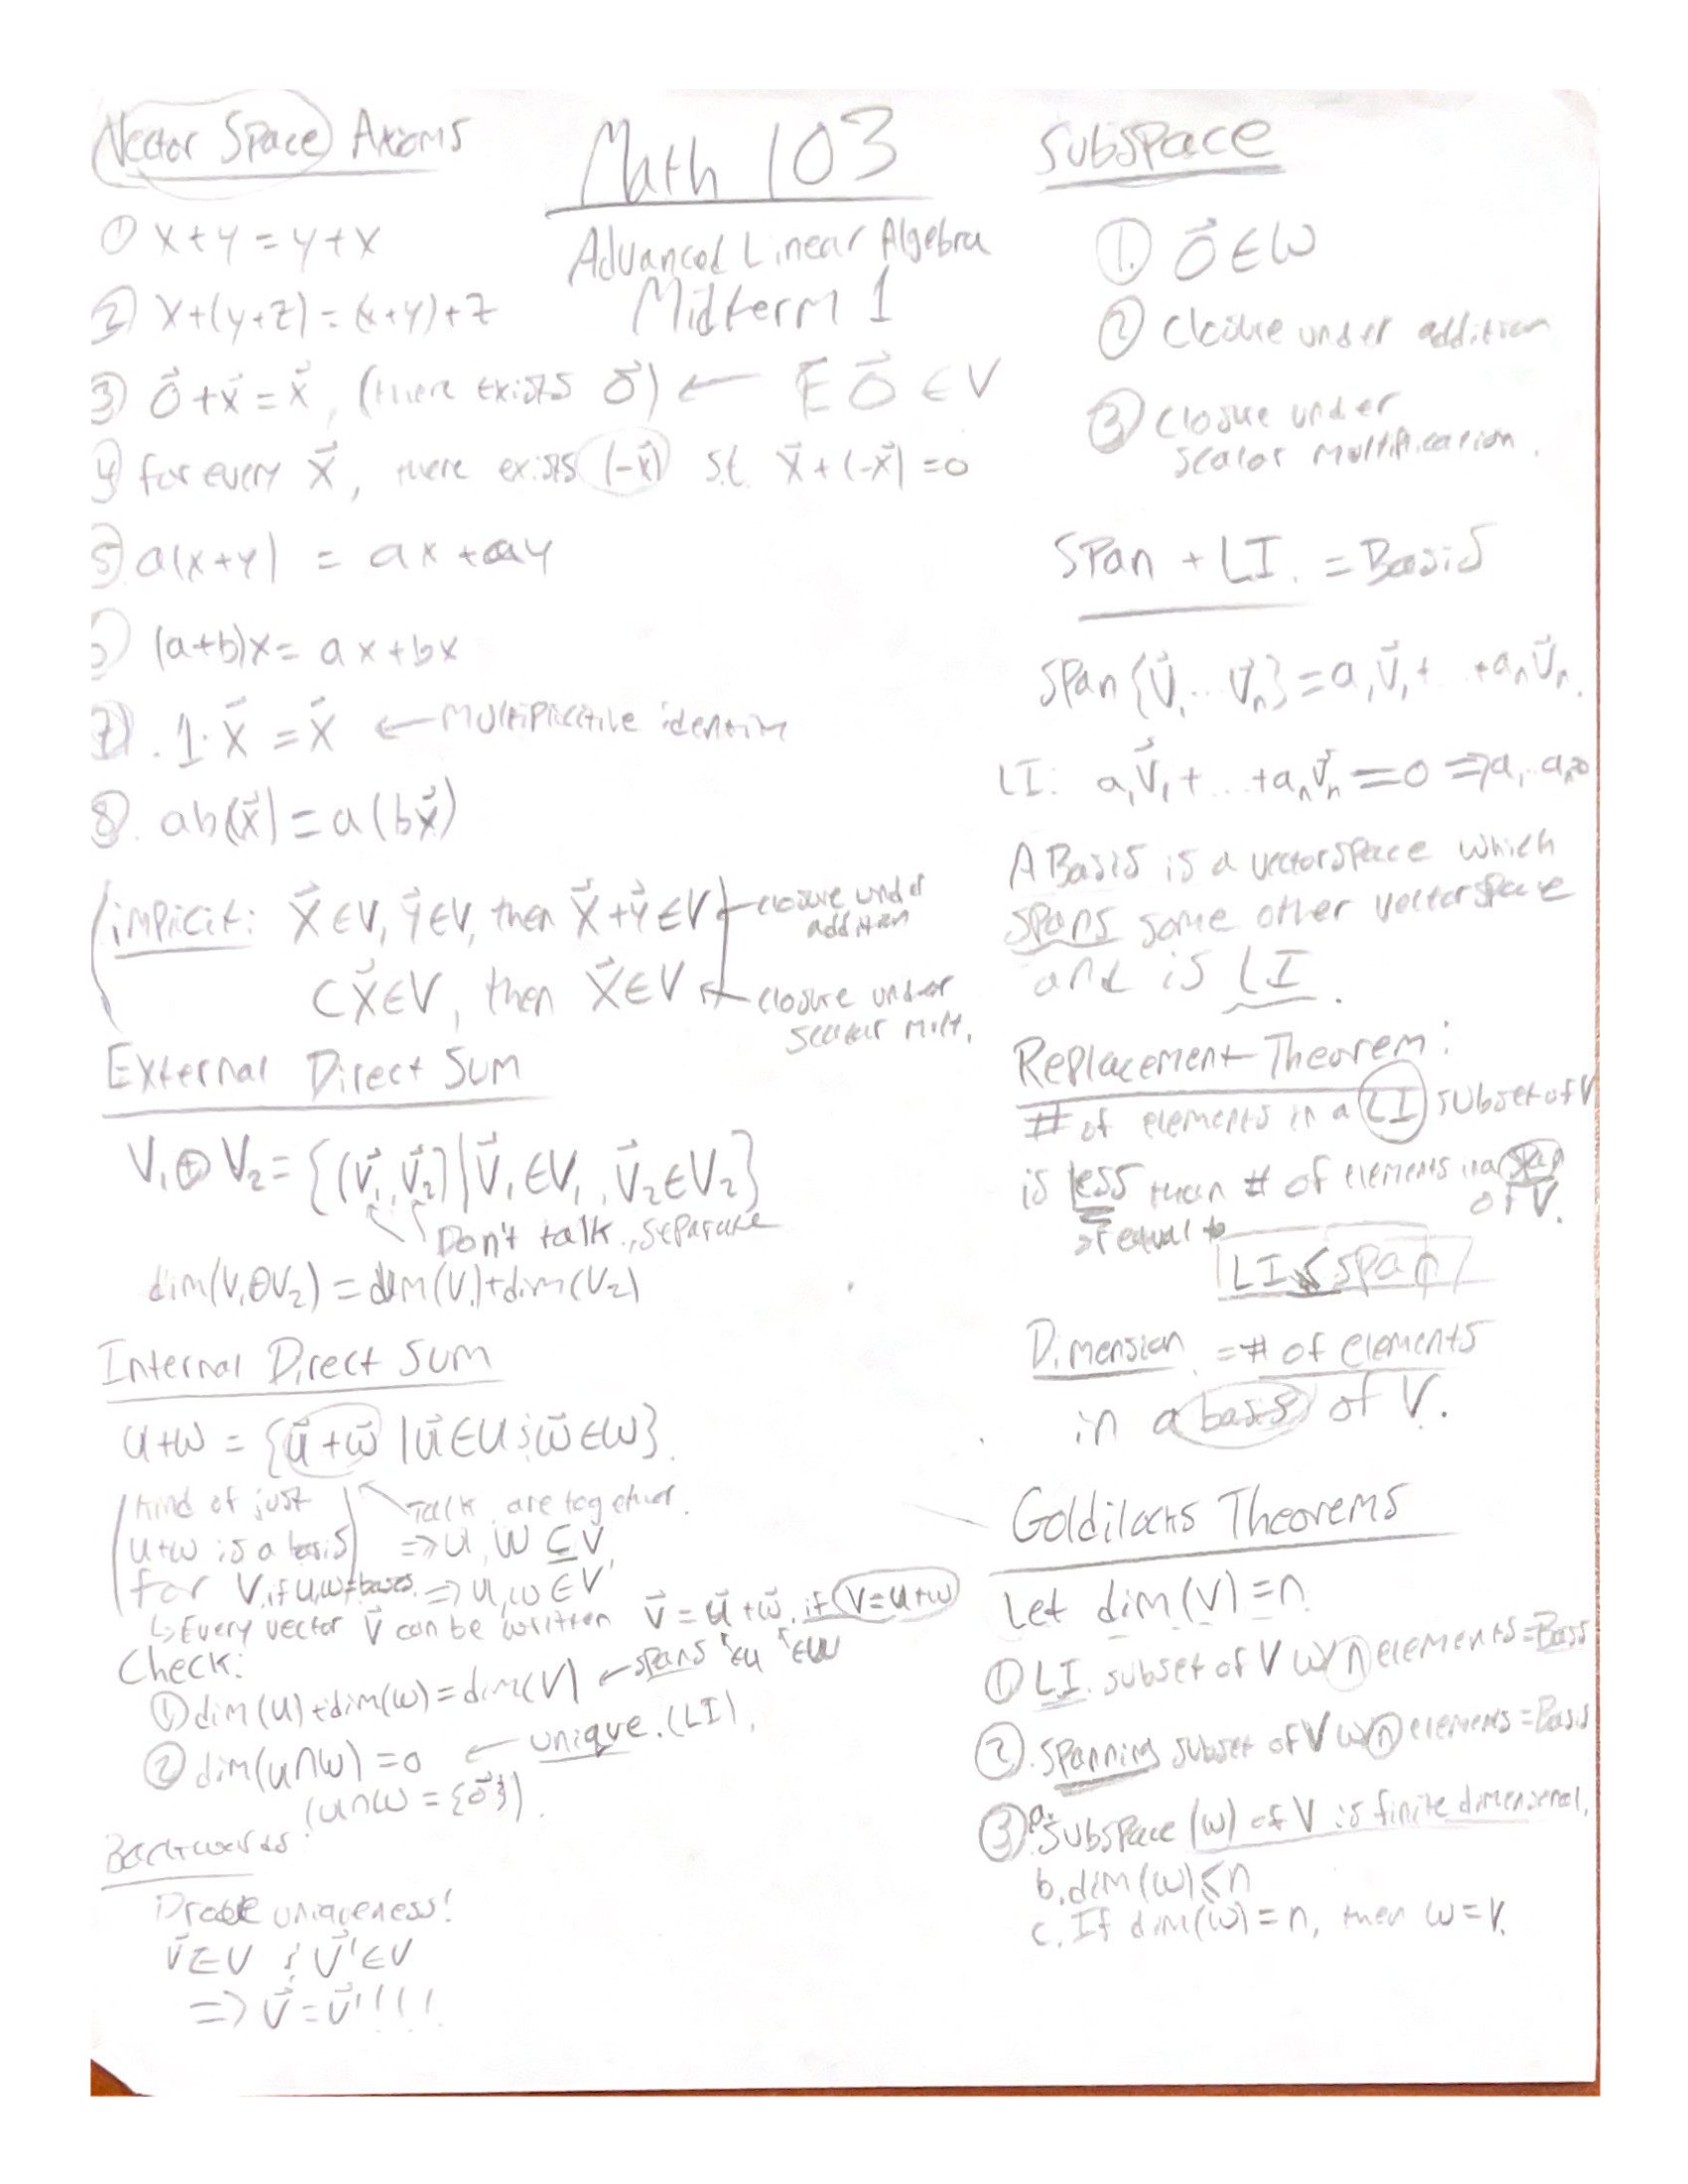 Vector Space Axioms
① x+y = y+x
② x+(y+z) = (x+y)+z
③ 0⃗+x⃗ = x⃗, (there exists 0⃗) ← E 0⃗ ∈ V
④ for every x⃗, there exists (-x⃗) s.t. x⃗+(-x⃗)=0
⑤ a(x+y) = ax+ay
⑥ (a+b)x = ax+bx
⑦. 1·x⃗ = x⃗ ← multiplicitive identity
⑧. ab(x⃗) = a(bx⃗)
impicit: x⃗∈V, y⃗∈V, then x⃗+y⃗∈V ← closure under addition
cx⃗∈V, then x⃗∈V ← closure under scalar mult.
External Direct Sum
V₁⊕V₂ = {(v⃗₁,v⃗₂)|v⃗₁∈V₁, v⃗₂∈V₂}
Don't talk, separate
dim(V₁⊕V₂) = dim(V₁)+dim(V₂)
Internal Direct Sum
U+W = {u⃗+w⃗ | u⃗∈U ; w⃗∈W}
Talk, are together.
(kind of just
U+W is a basis
for V, if U,W=bases.
⇒ U, W ⊆ V
⇒ u,w ∈ V
↳ Every vector v⃗ can be written v⃗ = u⃗+w⃗, if V=U+W
∈U ∈W
Check:
① dim(U)+dim(W) = dim(V) ← spans
② dim(U∩W) = 0 ← unique. (LI).
(U∩W = {0⃗}).
Backwards
uniqueness!
v⃗∈V ; v⃗'∈V
⇒ v⃗ = v⃗'!!!
Math 103
Advanced Linear Algebra
Midterm 1
Subspace
①. 0⃗∈W
② Closure under addition
③ closure under
scalar multiplication.
Span + LI. = Basis
Span{v⃗₁...v⃗ₙ} = a₁v⃗₁+ ..+aₙv⃗ₙ.
LI: a₁v⃗₁+...+aₙv⃗ₙ = 0 ⇒ a₁..aₙ=0
A Basis is a vectorspace which
spans some other vectorspace
and is LI.
Replacement Theorem:
# of elements in a LI subset of V
is less than # of elements in a span
of V.
or equal to
LI ≤ span
Dimension = # of elements
in a basis of V.
Goldilocks Theorems
Let dim(V) = n
① LI. subset of V w/ n elements = Basis
②. Spanning subset of V w/ n elements = Basis
③ a. Subspace (W) of V is finite dimensional.
b. dim(W) ≤ n
c. If dim(W) = n, then W=V.